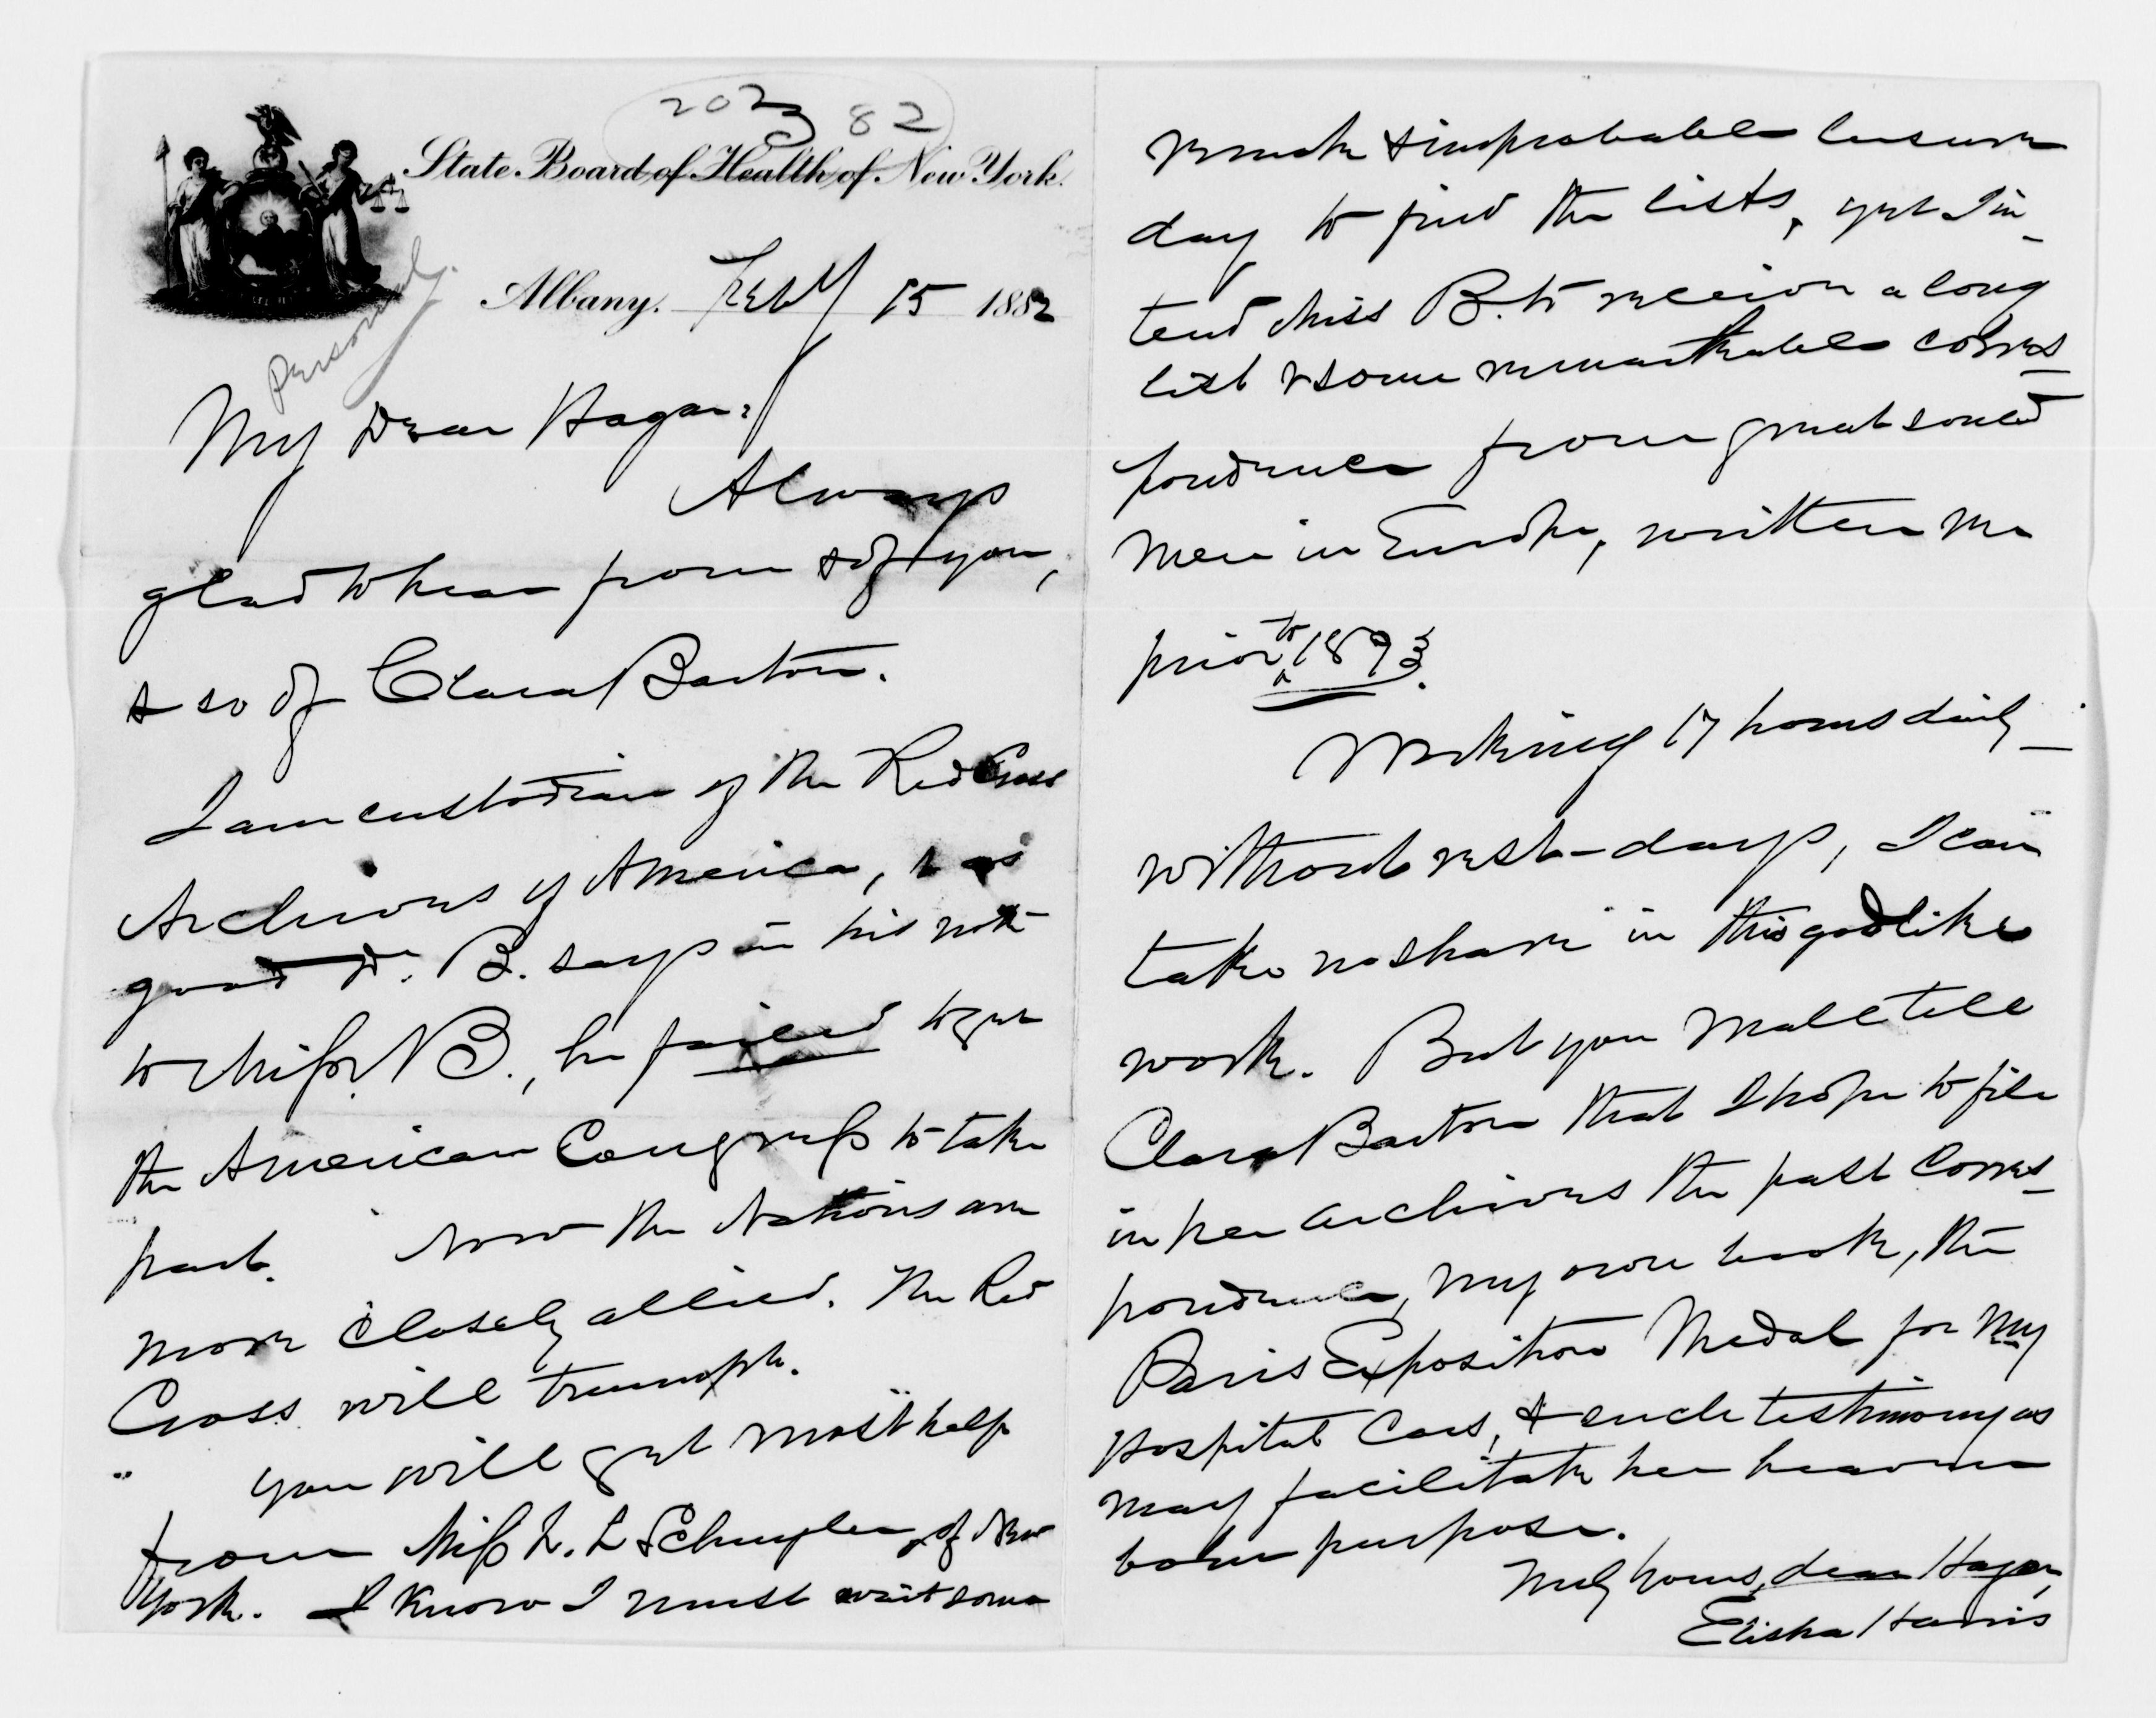 203 82
State Board of Health of New York.
Personal.
Albany. Feby 15 1882
My Dear Hagan,
Always
glad to hear from & of you,
& so of Clara Barton.
I am custodian of the Red Cross
Archives of America, & as
good Dr. B. says in his note
to Miss B., he failed to get
the American Congress to take
part. Now the Nations are
more closely allied. The Red
Cross will triumph.
You will get most help
from Miss L. L Schuyler of New
York. I know I must wait some
remote & improbable leisure
day to find the lists, yet I in-
tend Miss B. to receive a long
list & some remarkable corres-
pondence from great souled
men in Europe, written me
prior to 1873.
Working 17 hours daily—
without rest-days, I can
take no share in this godlike
work. But you shall tell
Clara Barton that I hope to file
in her archives the past corres-
pondence, my own book, the
Paris Exposition Medal for my
Hospital Cars, & such testimony as
may facilitate her heaven
born purpose.
Truly yours, dear Hagan,
Elisha Harris